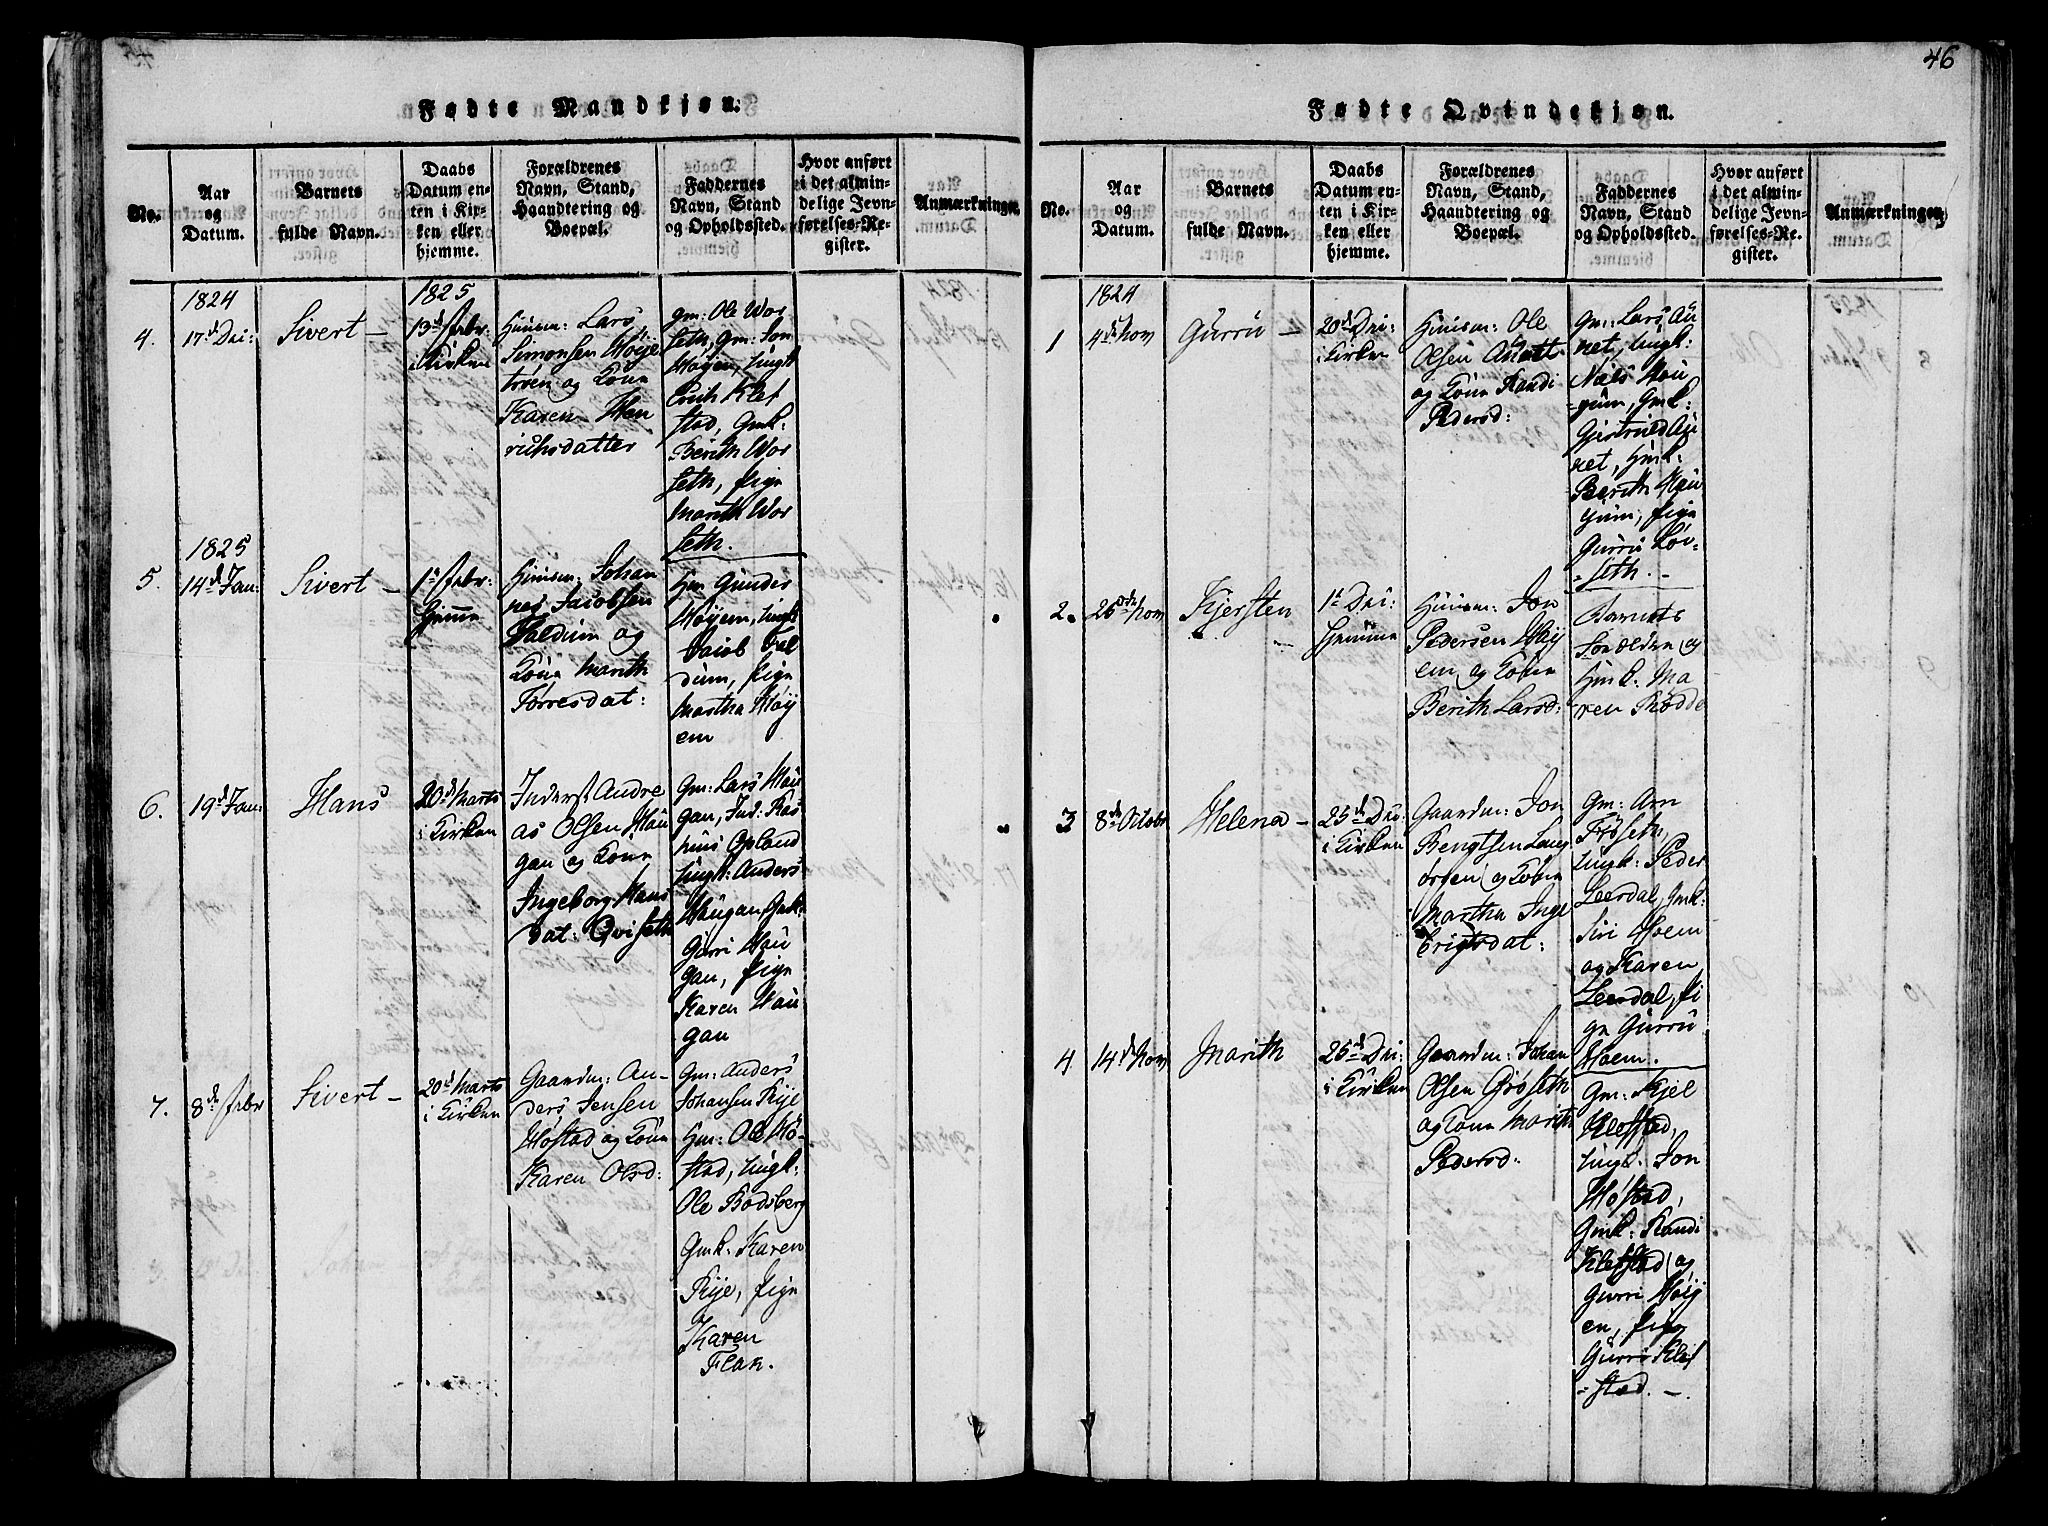 46
Fødte Mandkjøn.
No.
Aar
og
Datum.
Barnets
fulde Navn.
Daabs
Datum en-
ten i Kir-
ken eller
hjemme.
Forældrenes
Navn, Stand,
Haandtering og
Boepæl.
Faddernes
Navn, Stand
og Opholdssted.
Hvor anført
i det almin-
delige Jevn-
førelses-Re-
gister.
Anmærkninger.
4.
1824
17de Dec:
Sivert -
1825
13de Febr:
i Kirken
Huusm: Lars
Simonsen Høije
trøen og Kone
Karen Hen
richsdatter
Gm: Ole Wor
seth, Gm: Jon
Høijen, Ungk:
Erich Klef
stad, Gmk:
Berith Wor
seth, Pige
Marith Wor
seth.
5.
1825
14de Jan:
Sivert -
1te Febr:
Hjemme
Huusm: Johan
nes Jacobsen
Faldum og
Kone Marith
Torresdat:
Hm: Gunder
Høijem, Ungk:
Jacob Fal
dum, Pige
Martha Høij
em
6.
19de Jan:
Hans
20de Marts
i Kirken
Inderst Andre
as Olsen Hau
gan og Kone
Ingeborg Hans
dat: Qviseth
Gm: Lars Hau
gan, Ind: Ras
mus Opland
Ungk: Anders
Haugan, Gmk:
Gurri Hau
gan, Pige
Karen Hau
gan
7.
8de Febr
Sivert -
20de Marts
i Kirken
Gaardm: An-
ders Jensen
Høstad og Kone
Karen Olsd:
Gm: Anders
Johansen Rye
Hm: Ole Hø-
stad, Ungk:
Ole Bodsberg
Gmk: Karen
Rye, Pige
Karen
Flak.
Fødte Qvindekjøn.
No.
Aar
og
Datum.
Barnets
fulde Navn.
Daabs
Datum en-
ten i Kir-
ken eller
hjemme.
Forældrenes
Navn, Stand,
Haandtering og
Boepæl.
Faddernes
Navn, Stand
og Opholdssted.
Hvor anført
i det almin-
delige Jevn-
førelses-Re-
gister.
Anmærkninger.
1
1824
4de Nov
Gurru -
20de Dec:
i Kirken
Huusm: Ole
Olsen
og Kone Randi
Pedersd:
Gm: Lars Au
net, Ungk:
Niels Hau
gum, Gmk:
Gjertrud Au
net, Hmk:
Berith Hau
gum, Pige
Gurru Lov-
seth. -
2.
26de Nov
Kjersten
1te Dec:
Hjemme
Huusm: Jon
Pedersen Høij
em og Kone
Berith Larsd:
Barnets
Forældre og
Hmk: Ma
ren Rødde
3
8de Octobr
Helena -
25de Dec:
i Kirken
Gaardm: Jon
Bengtsen Lang
ørgen og Kone
Martha Inge
brigtsdat:
Gm: Arn
Frøseth,
Ungk: Peder
Leerdal, Gmk:
Siri Hoem
og Karen
Leerdal, Pi
ge Gurru
Hoem.
4
14de Nov
Marith
26de Dec:
i Kirken
Gaardm: Johan
Olsen Grøseth
og Kone Marith
Pedersd:
Gm: Kjel
Klefstad,
Ungk: Jon
Høstad,
Gmk: Randi
Klefstad og
Gurri Høij
en, Pige
Gurri Klef
-stad. -